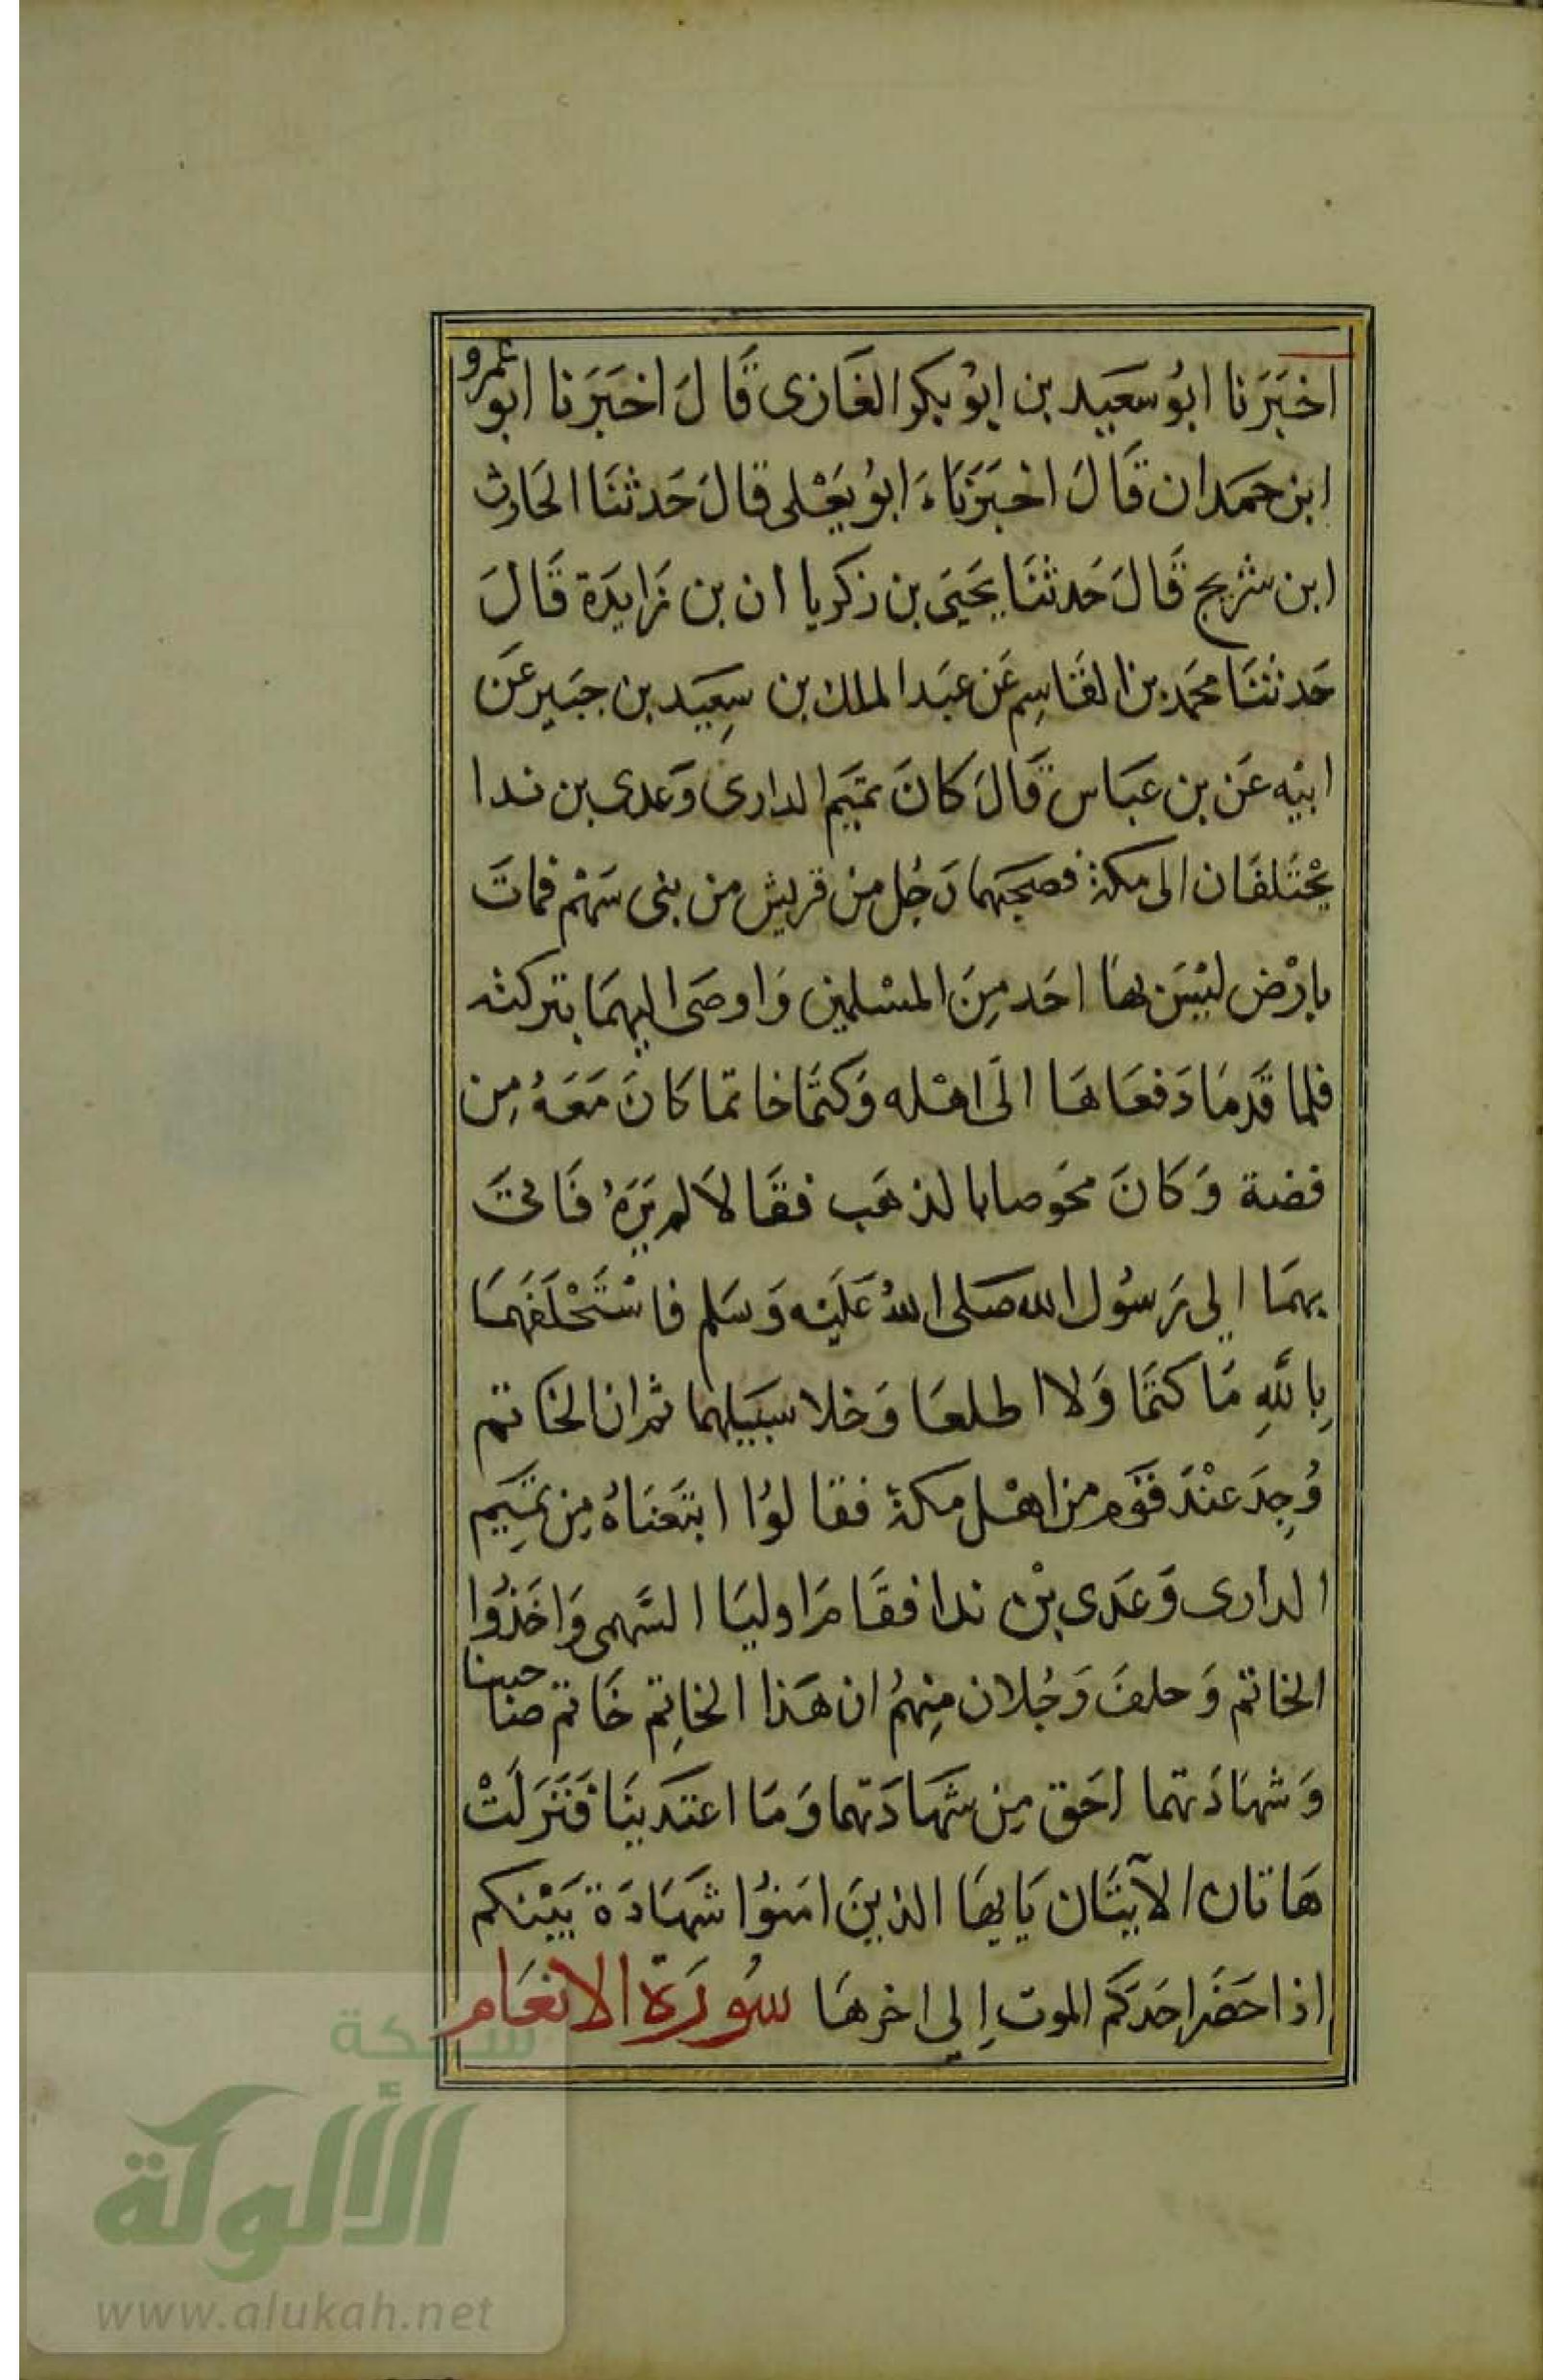 اخبَرَنا ابُو سَعَيد بن ابوُ بكر الغَازى قَالَ اخبَرَنا ابو عمرو
ابن حمَدان قَالَ اخبَرَنَاءَ ابوُ يَعْلى قالَ حَدثنَا الحَارث
ابن شريح قَالَ حَدثنَا يَحيَى بن زكريا ان بن زَايدَة قَالَ
حَدثنَا محمَد بن القَاسِم عَن عبَد الملك بن سِعيَد بن جبَير عَن
ابيْه عَن بن عبَاس قَالَ كانَ تميَم الدارى وَعَدى بن ندا
يحْتَلفَان الى مكة فصحبَهما رَجُل مِن قريش من بنى سَهْم فماتَ
بارْض ليْسَ بهَا احَد مِنَ المسْلمين وَاوصَى اليهمَا بتركته
فلما قَدمَا دَفعَاهَا الَى اهْله وَكتمَا خاتما كانَ مَعَهُ مِن
فضة وَكانَ مخَوصا بالذهَب فقَالاَ لم نرَهُ فَاتىَ
بهمَا الِى رَسُول الله صَلى اللهُ عَليَه وَسَلم فاسْتَحْلَفهمَا
بِاللَّهِ مَا كتمَا وَلا اطلعَا وَخلا سبَيلهما ثم ان الخَاتم
وُجِدَ عنْدَ قوَم من اهْل مكة فقالوُا ابتَعنَاهُ مِن تميِم
الدارى وَعَدى بْن ندا فقَامَ اوليَا السَهمى وَاخَذوُا
الخاتم وَحلفَ رَجُلان مِنهمُ ان هَذا الخاتِم خَاتم صَاحبنا
وَشهَادَتهما احَق مِن شَهَادَتهما وَمَا اعتَدينَا فَنَزَلَتْ
هَاتان الآيتَان يَايهَا الذينَ امَنوُا شهَادَة بَيْنكم
اذا حَضَر احَدَكم الموت اِلى اخرهَا سُورَة الانعَام
شبكة
الألوكة
www.alukah.net